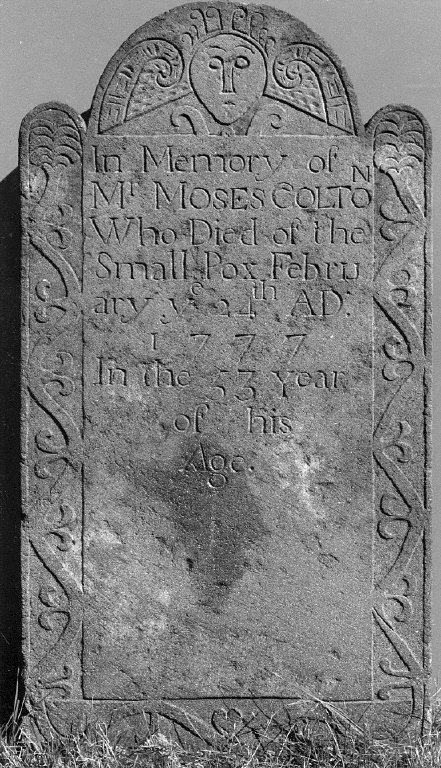 In Memory of
Mr MOSES COLTON
Who Died of the
Small Pox Febru
ary ye 24th AD.
1777
In the 53 year
of his
Age.